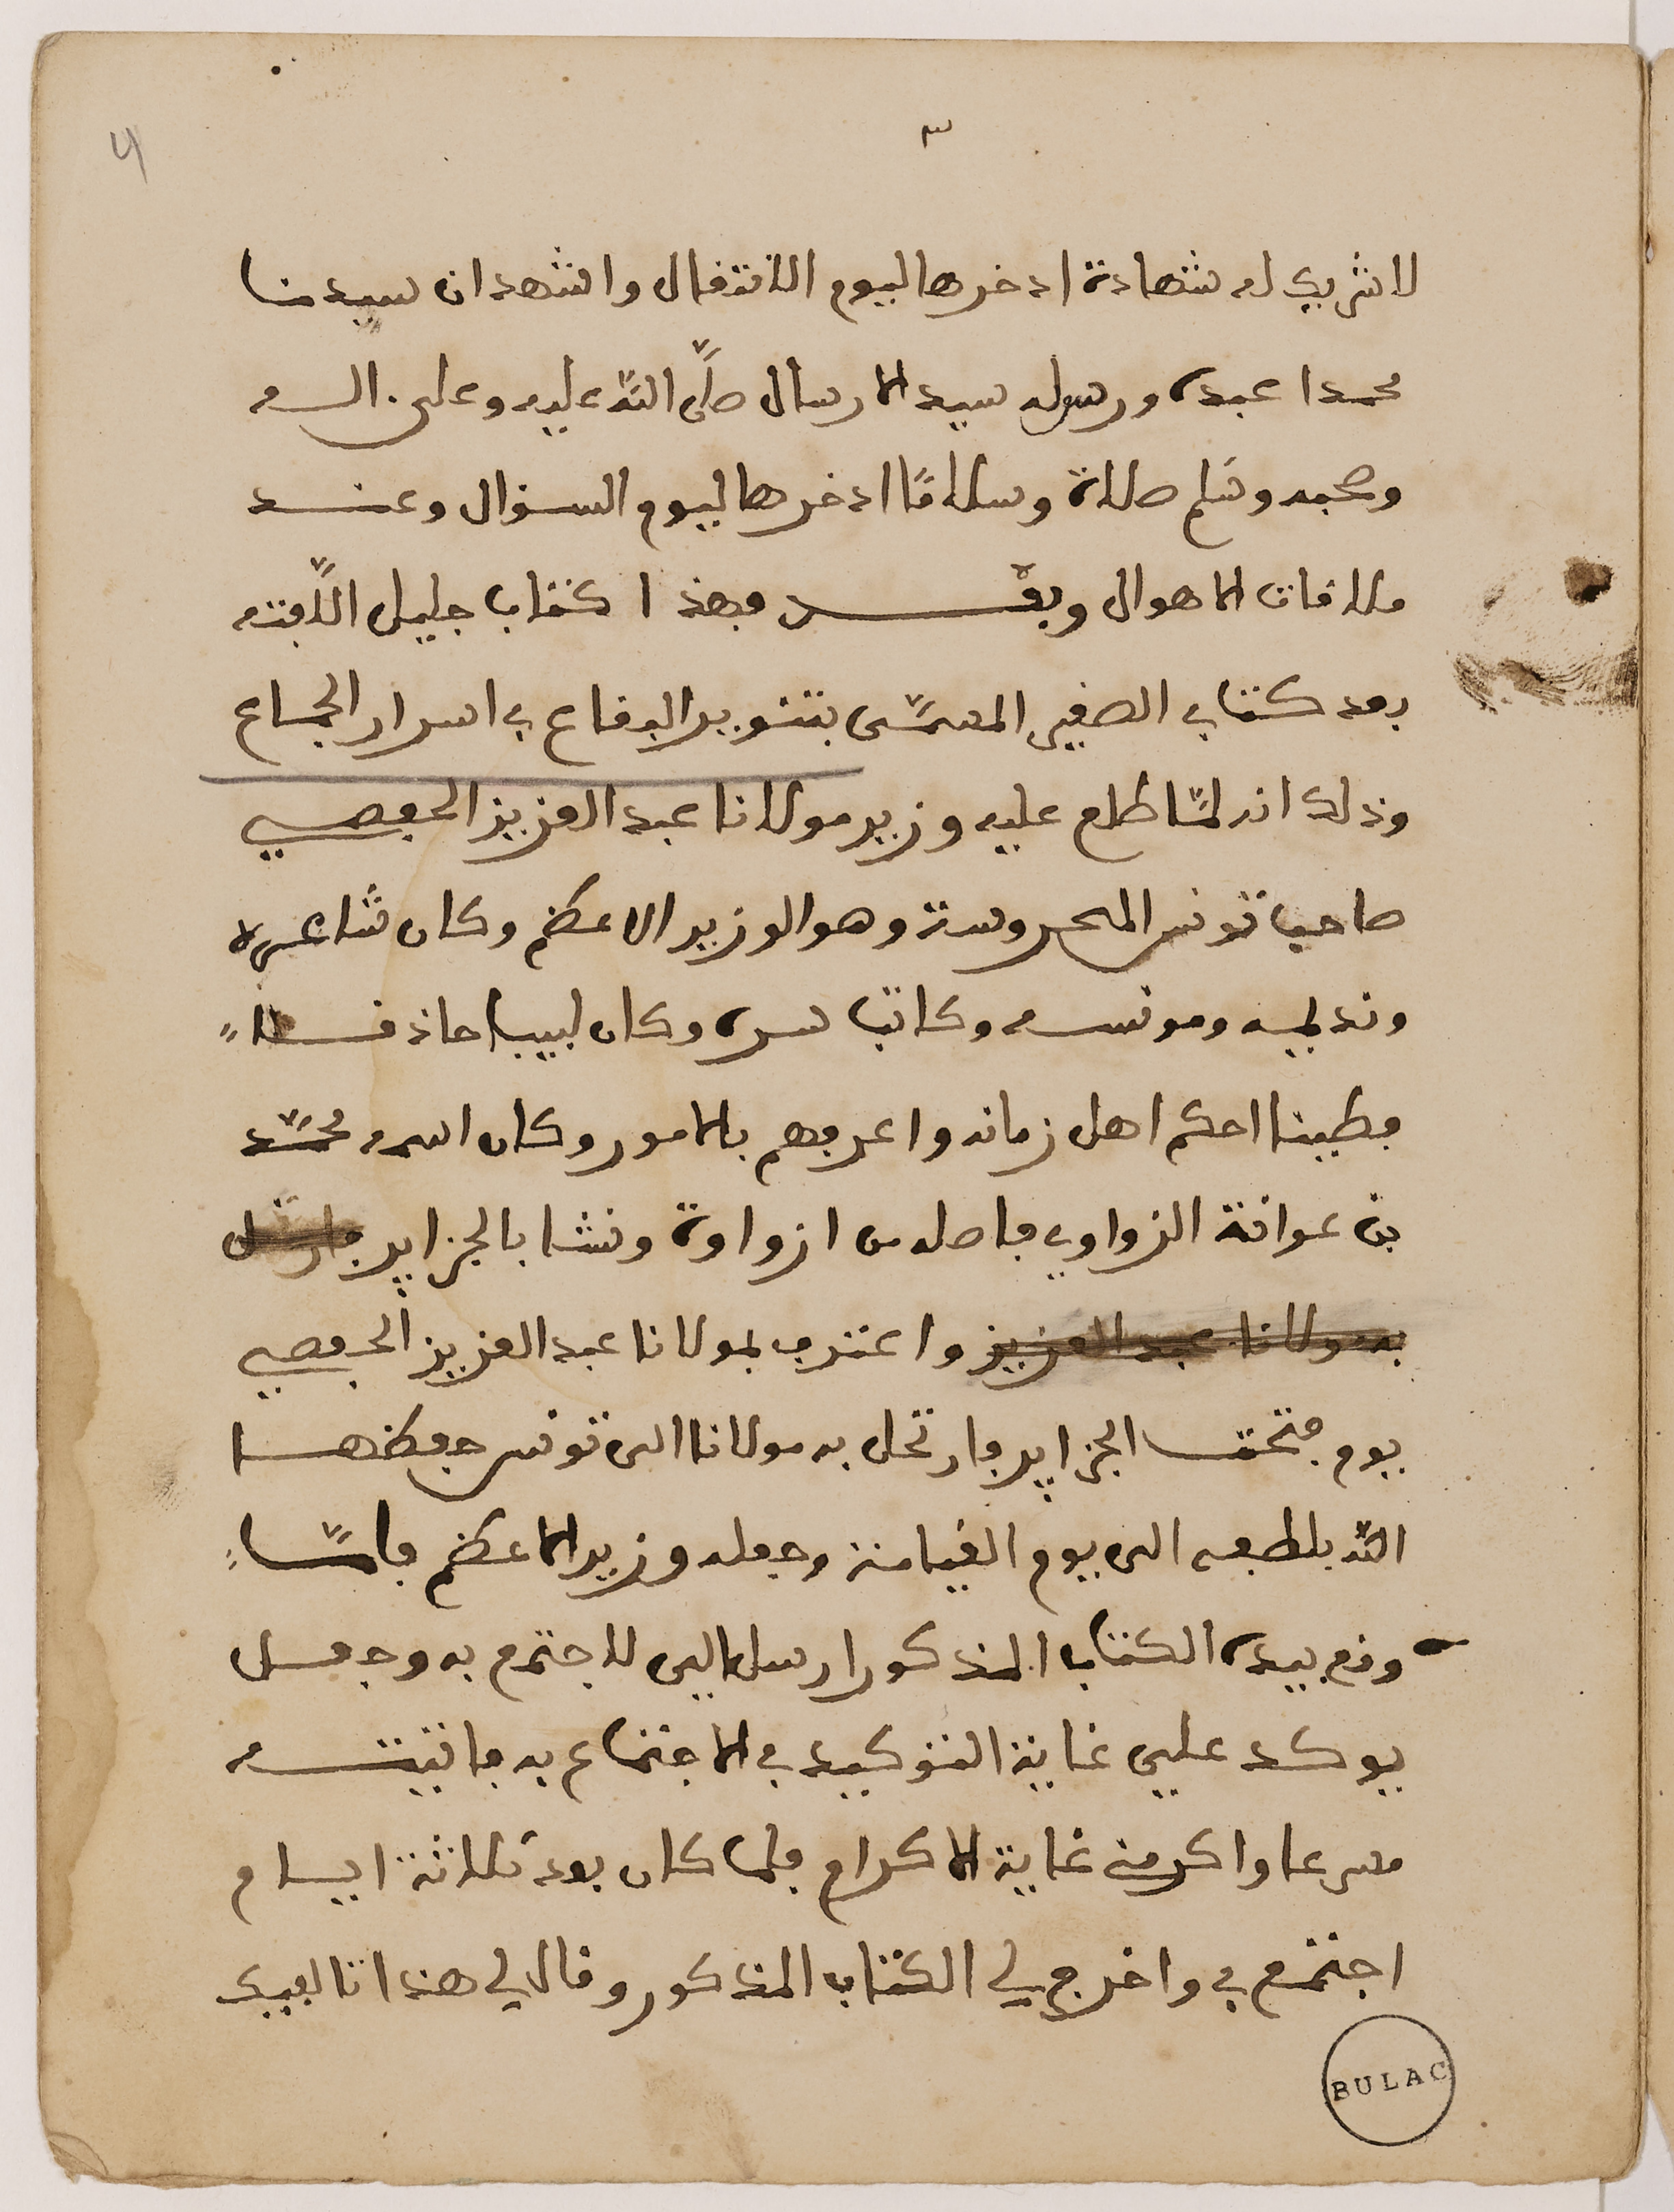 ٣
لا شريك له شهادة ادخرها ليوم الانتقال واشهد ان سيدنا
محمدا عبده ورسوله سيد الارسال صلَّى اللّه عليه وعلى اله
وصحبه وسَلم صلاة وسلامًا ادخرها ليوم السؤال وعند
ملاقات الاهوال وبعد فهذا كتاب جليل الَّفته
بعد كتاب الصغير المسمَّى بتنوير الوقاع في اسرار الجماع
وذلك انه لمَّا طلع عليه وزير مولانا عبد العزيز الحفصي
صاحب تونس المحروسة وهو الوزير الاعظم وكان شاعره
ونديمه ومونسه وكاتب سره وكان لبيبا حاذقا
فطينا احكم اهل زمانه واعرفهم بالامور وكان اسمه محمَّد
بن عوانة الزواوي فاصله من ازواوة ونشا بالجزاير فارتحل
به مولانا عبد العزيز واعترف بمولانا عبد العزيز الحفصي
يوم فتحت الجزاير فارتحل به مولانا الى تونس حفظها
اللّه بلطفه الى يوم القيامة وجعله وزير الاعظم فامَّا
وقع بيده الكتاب المذكور ارسل الي لاجتمع به وجعل
يوكد علي غاية التوكيد في الاجتماع به فاتيته
مسرعا واكرمني غاية الاكرام فلما كان بعد ثلاثة ايام
اجتمع بي واخرج لي الكتاب المذكور وقال لي هذا تاليفك
BULAC